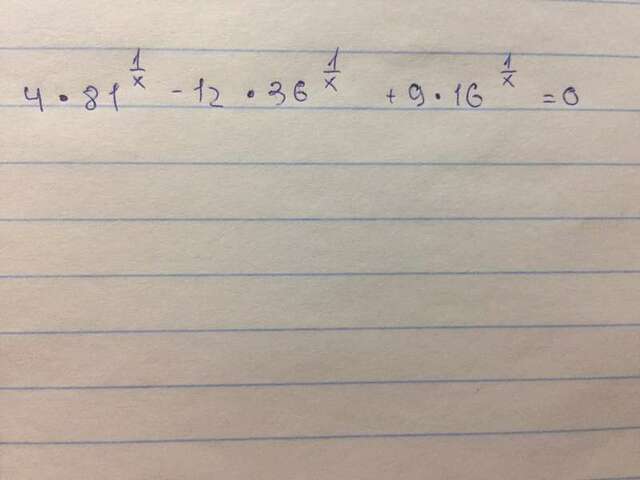 4 • 81^{1/x} - 12 • 36^{1/x} + 9 • 16^{1/x} = 0